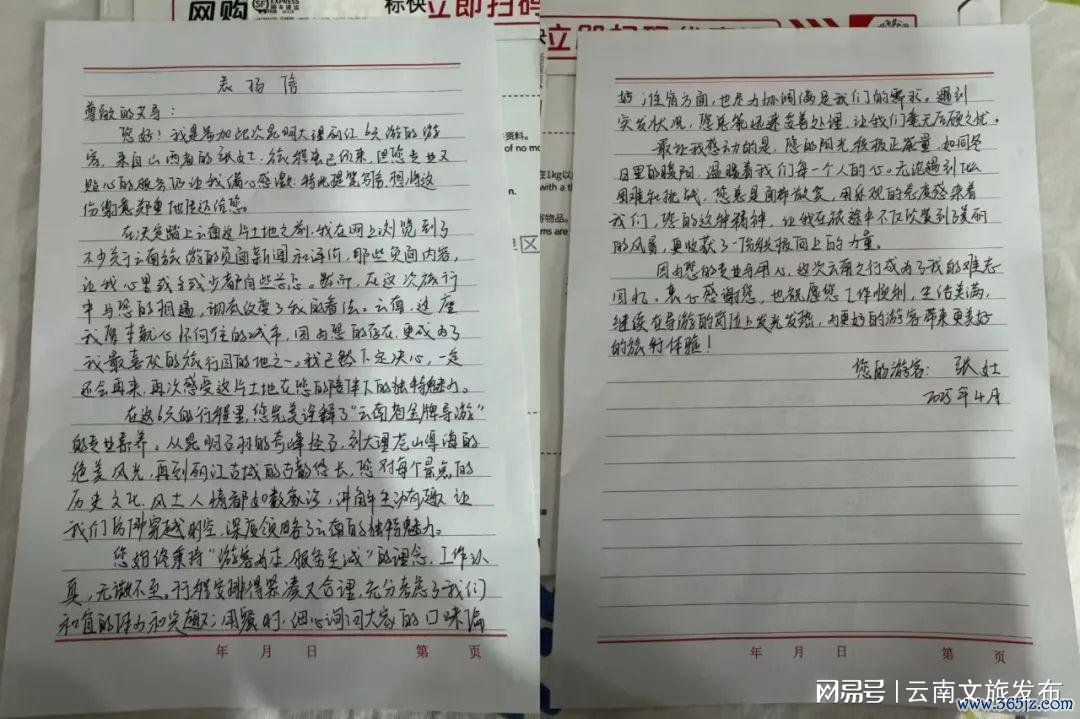 网购
SF EXPRESS
标快
立即扫码
立即扫码
资料。
of no
在1kg以
with a
寄物品。
ms are
表扬信
尊敬的艾导：
您好！我是参加此次昆明大理丽江6天游的游
客，来自山西省的张女士，旅程虽已结束，但您专业又
贴心的服务仍让我满心感激，特此提笔写信，想将这
份谢意郑重地传达给您。
在决定踏上云南这片土地之前，我在网上浏览到了
不少关于云南旅游的负面新闻和评价，那些负面内容，
让我心里或多或少都有些芥忌。然而，在这次旅行
中与您的相遇，彻底改变了我的看法。云南，这座
我原本就心怀向往的城市，因为您的存在，更成为了
我最喜欢的旅行目的地之一。我已然下定决心，一定
还会再来，再次感受这片土地在您的陪伴下的独特魅力。
在这6天的行程里，您完美诠释了“云南省金牌导游”
的专业素养。从昆明石林的奇峰怪石，到大理苍山洱海的
绝美风光，再到丽江古城的古韵悠长，您对每个景点的
历史文化、风土人情都如数家珍，讲解生动有趣，让
我们仿佛穿越时空，深度领略了云南的独特魅力。
您始终秉持“游客为本，服务至诚”的理念，工作认
真，无微不至。行程安排得紧凑又合理，充分考虑了我们
每位的体力和兴趣；用餐时，细心询问大家的口味偏
年 月 日 第 页
好；住宿方面，也尽力协调满足我们的需求。遇到
突发状况，您总能迅速妥善处理，让我们毫无后顾之忧。
最让我感动的是，您的阳光积极正能量，如同冬
日里的暖阳，温暖着我们每一个人的心。无论遇到什么
困难和挑战，您总是面带微笑，用乐观的态度感染着
我们，您的这种精神，让我在旅途中不仅欣赏到了美丽
的风景，更收获了一份积极向上的力量。
因为您的专业与用心，这次云南之行成为了我的难忘
回忆。衷心感谢您，也祝愿您工作顺利，生活美满，
继续在导游的岗位上发光发热，为更多的游客带来更美好
的旅行体验！
您的游客：张女士
2025年4月
年 月 日 第 页
网易号 | 云南文旅发布
www.365jz.com